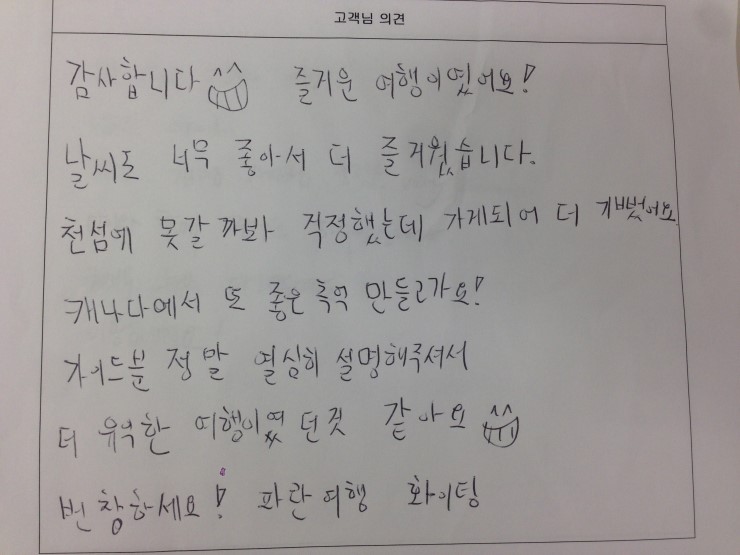 고객님 의견
감사합니다 ^^ 즐거운 여행이었어요!
날씨도 너무 좋아서 더 즐거웠습니다.
천섬에 못갈까봐 걱정했는데 가게되어 더 기뻤어요
캐나다에서 또 좋은 추억 만들고가요!
가이드분 정말 열심히 설명해주셔서
더 유익한 여행이였던것 같아요 ^^
번창하세요! 파란여행 화이팅